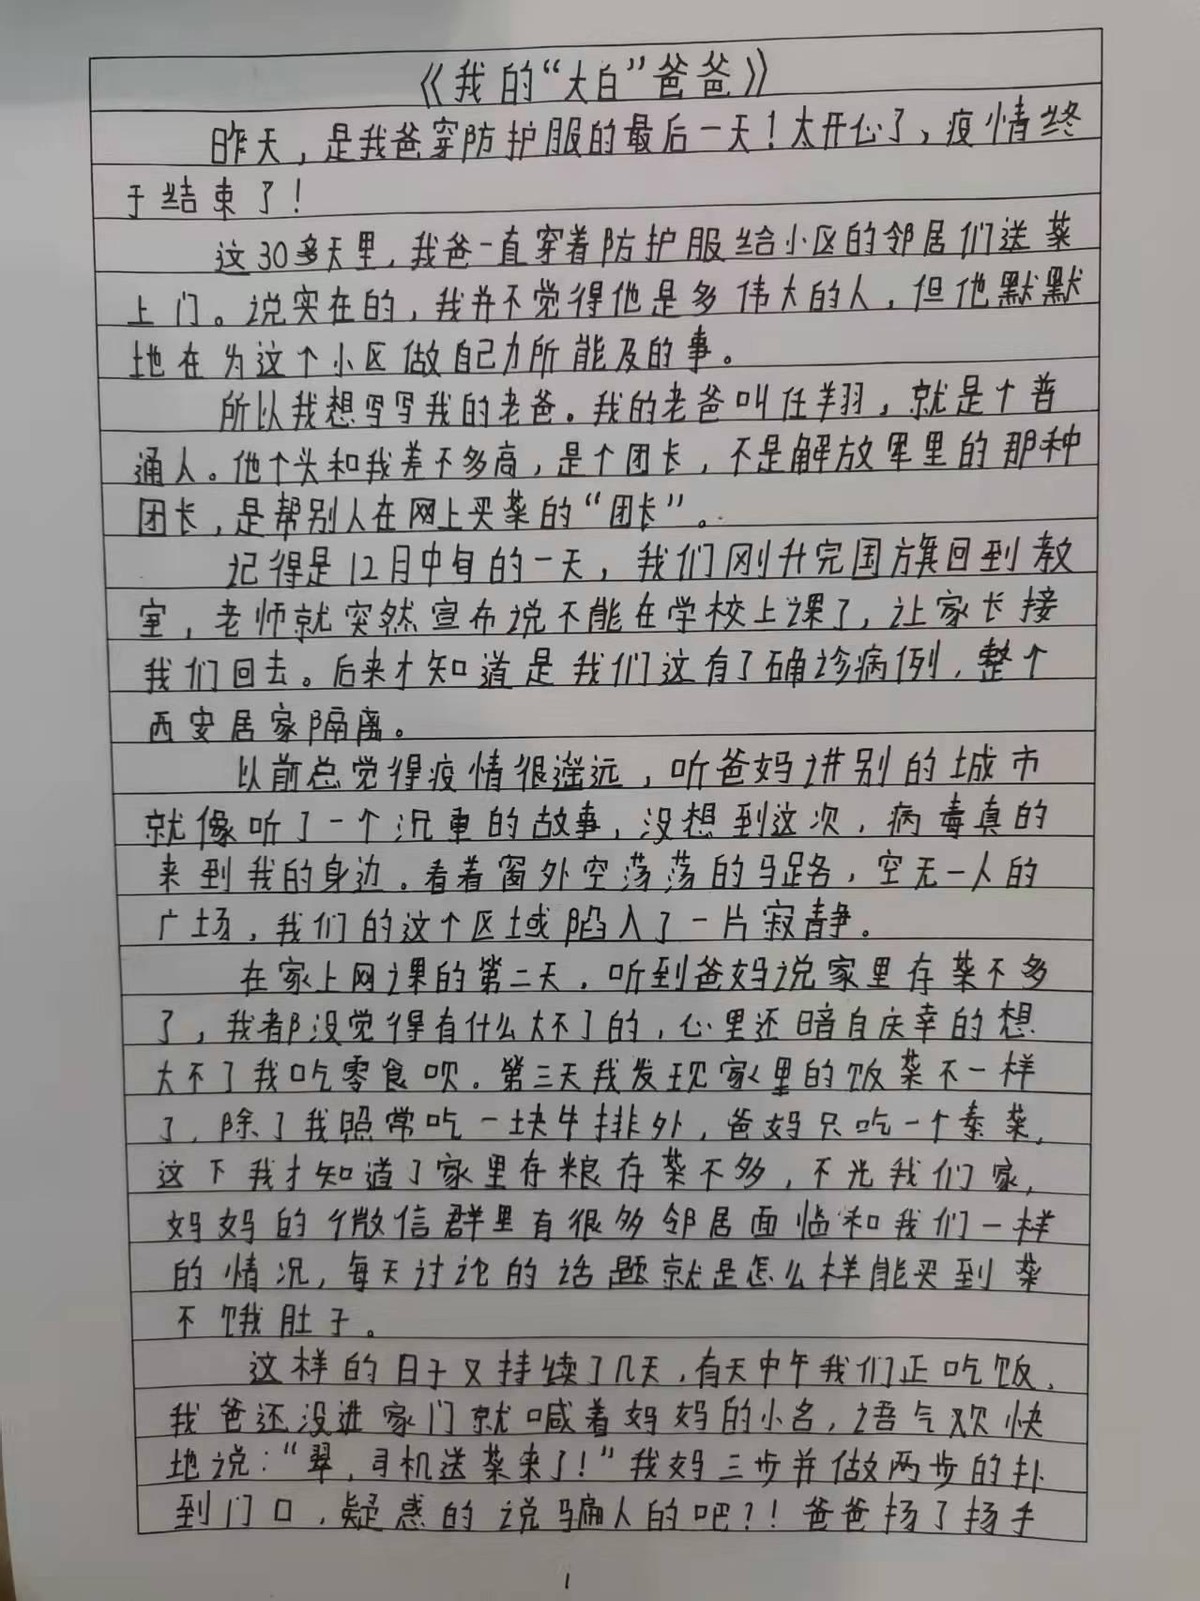 《我的“大白”爸爸》
昨天，是我爸穿防护服的最后一天！太开心了，疫情终
于结束了！
这30多天里，我爸一直穿着防护服给小区的邻居们送菜
上门。说实在的，我并不觉得他是多伟大的人，但他默默
地在为这个小区做自己力所能及的事。
所以我想写写我的老爸。我的老爸叫任羊羽，就是个普
通人。他个头和我差不多高，是个团长，不是解放军里的那种
团长，是帮别人在网上买菜的“团长”。
记得是12月中旬的一天，我们刚升完国旗回到教
室，老师就突然宣布说不能在学校上课了，让家长接
我们回去。后来才知道是我们这有了确诊病例，整个
西安居家隔离。
以前总觉得疫情很遥远，听爸妈讲别的城市
就像听了一个沉重的故事，没想到这次，病毒真的
来到我的身边。看着窗外空荡荡的马路，空无一人的
广场，我们的这个区域陷入了一片寂静。
在家上网课的第二天，听到爸妈说家里存菜不多
了，我都没觉得有什么大不了的，心里还暗自庆幸的想
大不了我吃零食呗。第三天我发现家里的饭菜不一样
了，除了我照常吃一块牛排外，爸妈只吃一个素菜，
这下我才知道了家里存粮存菜不多，不光我们家，
妈妈的微信群里有很多邻居面临和我们一样
的情况，每天讨论的话题就是怎么样能买到菜
不饿肚子。
这样的日子又持续了几天，有天中午我们正吃饭，
我爸还没进家门就喊着妈妈的小名，语气欢快
地说：“翠，司机送菜来了！”我妈三步并做两步的扑
到门口，疑惑的说骗人的吧？！爸爸扬了扬手
1